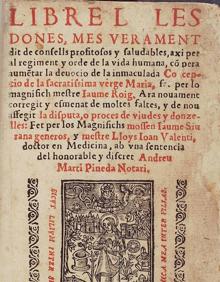 LIBRE DE LES
DONES, MES VERAMENT
dit de consells profitosos y saludables, axi per
al regiment y orde de la vida humana, cō pera
aumētar la deuocio de la inmaculada Co cep-
cio de la sacratissima verge Maria, fet per lo
magnifich mestre Iaume Roig, Ara nouament
corregit y esmenat de moltes faltes, y de nou
affegit la disputa, o proces de viudes y donze-
lles: Fet per los Magnifichs mossen Iaume Siu
rana generos, y mestre Lloys Ioan Valenti,
doctor en Medicina, ab vna sentencia
del honorable y discret Andreu
Marti Pineda Notari.
SICVT LILIVM INTER SPI
MICA MEA INTER FILIAS.